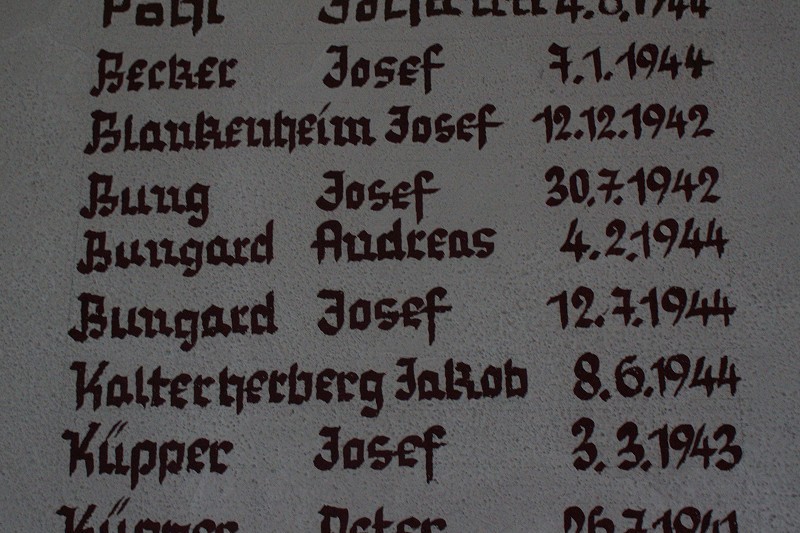 Pohl Johann 4.8.1944
Becker Josef 7.1.1944
Blankenheim Josef 12.12.1942
Bung Josef 30.7.1942
Bungard Andreas 4.2.1944
Bungard Josef 12.7.1944
Kalterherberg Jakob 8.6.1944
Küpper Josef 3.3.1943
Küpper Peter 26.7.1941